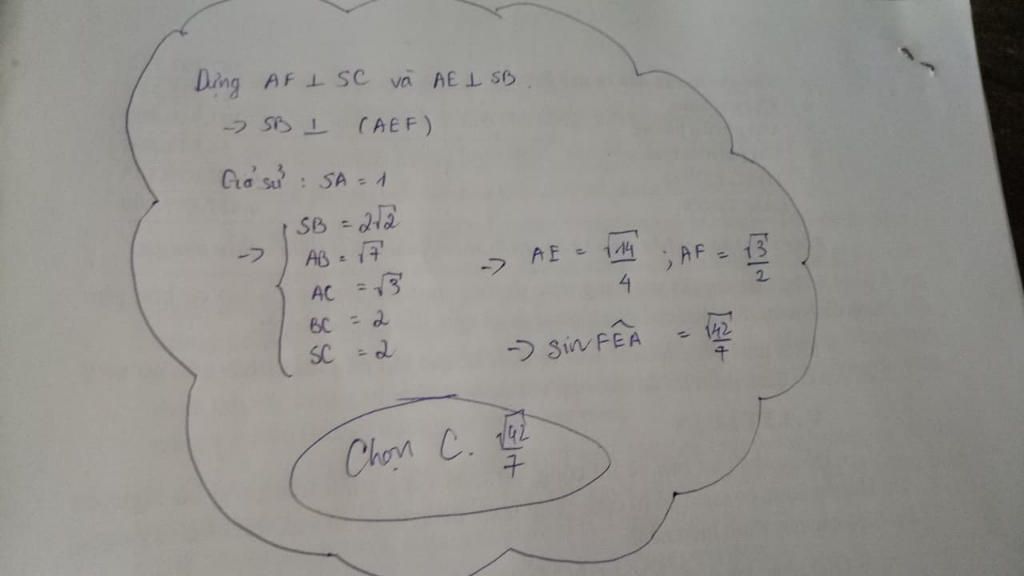 Dựng AF ⊥ SC và AE ⊥ SB.
→ SB ⊥ (AEF)
Giả sử : SA = 1
→ { SB = 2√2
AB = √7
AC = √3
BC = 2
SC = 2
→ AE = √14/4 ; AF = √3/2
→ sin FÊA = √42/7
Chọn C. √42/7